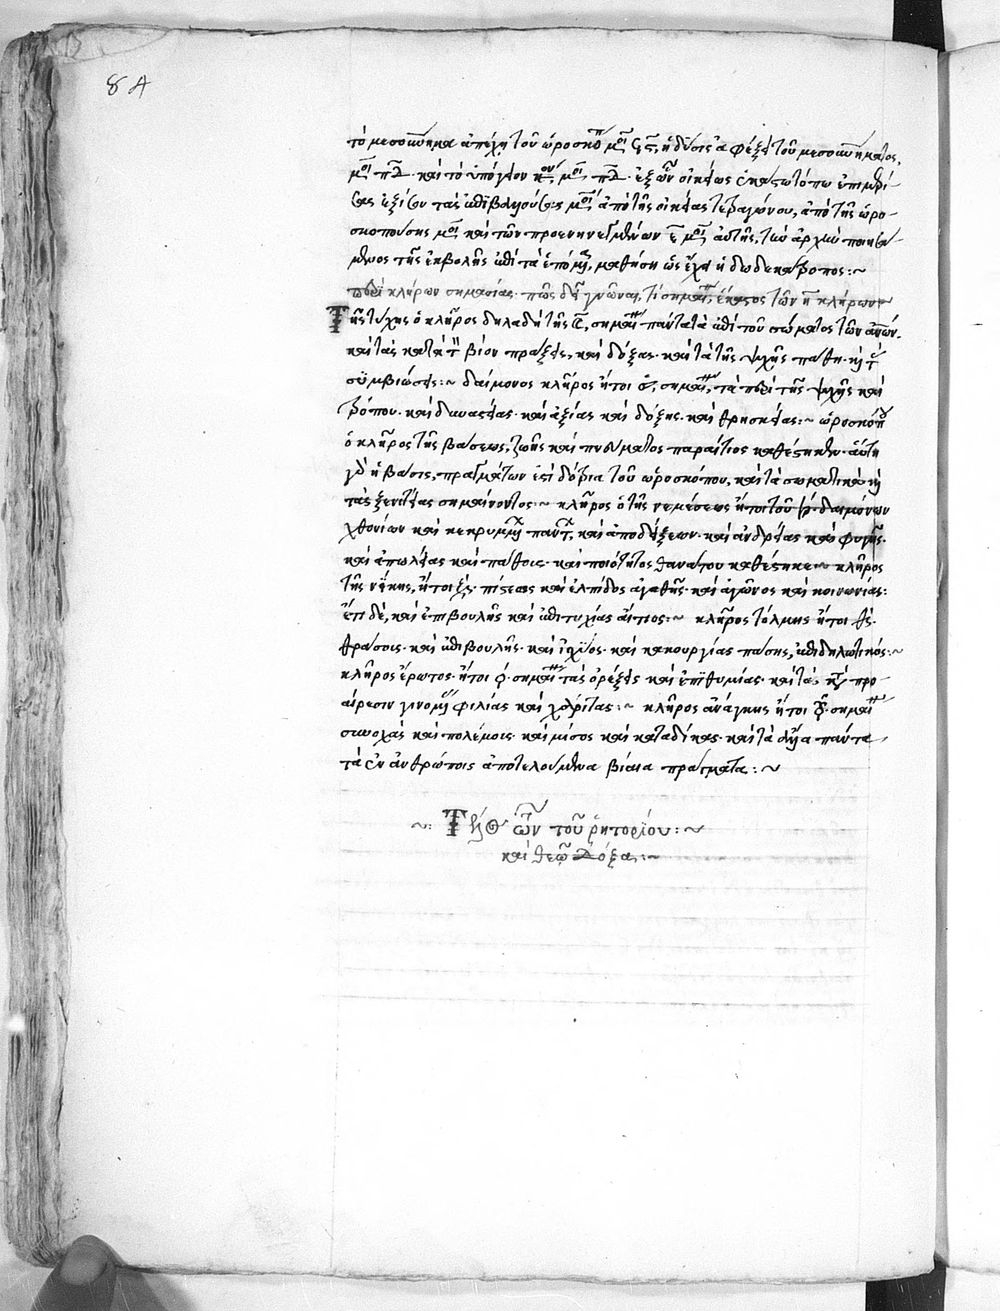 84
τὸ μεσουράνημα ἀπέχει τοῦ ὡροσκό μοῖ ἡ δύσις τοῦ μεσουρανήματος,
μοῖ καὶ τὸ ὑπόγειον μοῖ ἐξ ὧν οἰκήσεως ἑκάστω τόπω ἐπιμερί
μοῖ ἀπὸ τῆς τετραγώνου, ἀπὸ τῆς ὡρο-
σκοπούσης μοῖ καὶ τῶν μοῖ αὐτῆς, τὴν ἀρχὴν
τῆς ἐκβολῆς ἐπὶ τὰ μαθήση ὡς ἔχει ἡ δωδεκάτροπος:~
περὶ κλήρων σημασίας. πῶς δεῖ γνῶναι, τί σημαί, ἕκαστος τῶν κλήρων
Τῆς τύχης ὁ κλῆρος δηλαδὴ τῆς σημαί πάντα τὰ ἐπὶ τοῦ σώματος τῶν ἀνων.
καὶ τὰς κατὰ τ βίον πράξεις, καὶ δόξας. καὶ τὰ τῆς ψυχῆς πάθη. καὶ τ
συμβιώσεις:~ δαίμονος κλῆρος ἤτοι σημαί, τὰ περὶ τῆς ψυχῆς καὶ
τρόπου. καὶ δυναστείας. καὶ ἀξίας καὶ δόξης. καὶ θρησκείας:~ ὡροσκό
ὁ κλῆρος τῆς βάσεως, ζωῆς καὶ πνεύματος παραίτιος καθέστηκεν. αὕτη
γὰρ ἡ βάσις, πραγμάτων ἐστὶ τοῦ ὡροσκόπου, καὶ τὰ σωματικὰ καὶ
τὰς ξενιτείας σημαίνοντος:~ κλῆρος ὁ τῆς νεμέσεως ἤτοι τοῦ δαιμόνων
χθονίων καὶ κεκρυμμ παντ, καὶ ἀποδείξεων. καὶ ἀνδρείας καὶ φυγῆς.
καὶ ἀπωλείας καὶ πάθοις. καὶ ποιότητος θανάτου καθέστηκε:~ κλῆρος
τῆς νίκης, ἤτοι πίστεως καὶ ἐλπίδος ἀγαθῆς. καὶ ἀγῶνος καὶ κοινωνίας:
ἔτι δὲ, καὶ ἐπιβουλῆς καὶ ἐπιτυχίας αἴτιος:~ κλῆρος τόλμης ἤτοι
θράσοις. καὶ ἐπιβουλῆς. καὶ ἰσχύος. καὶ κακουργίας πάσης, ἐπιδηλωτικός:~
κλῆρος ἔρωτος. ἤτοι σημαί τὰς ὀρέξεις καὶ ἐπιθυμίας. καὶ τὰς κατὰ προ-
αίρεσιν γινομ φιλίας καὶ χάριτας:~ κλῆρος ἀνάγκης ἤτοι σημαί
συνοχὰς καὶ πολέμοις. καὶ μῖσος καὶ καταδίκας. καὶ τὰ πάντα
τὰ ἐν ἀνθρώποις ἀποτελούμενα βίαια πράγματα:~
~: τοῦ ῥητορίου:~
καὶ θεῷ δόξα:~